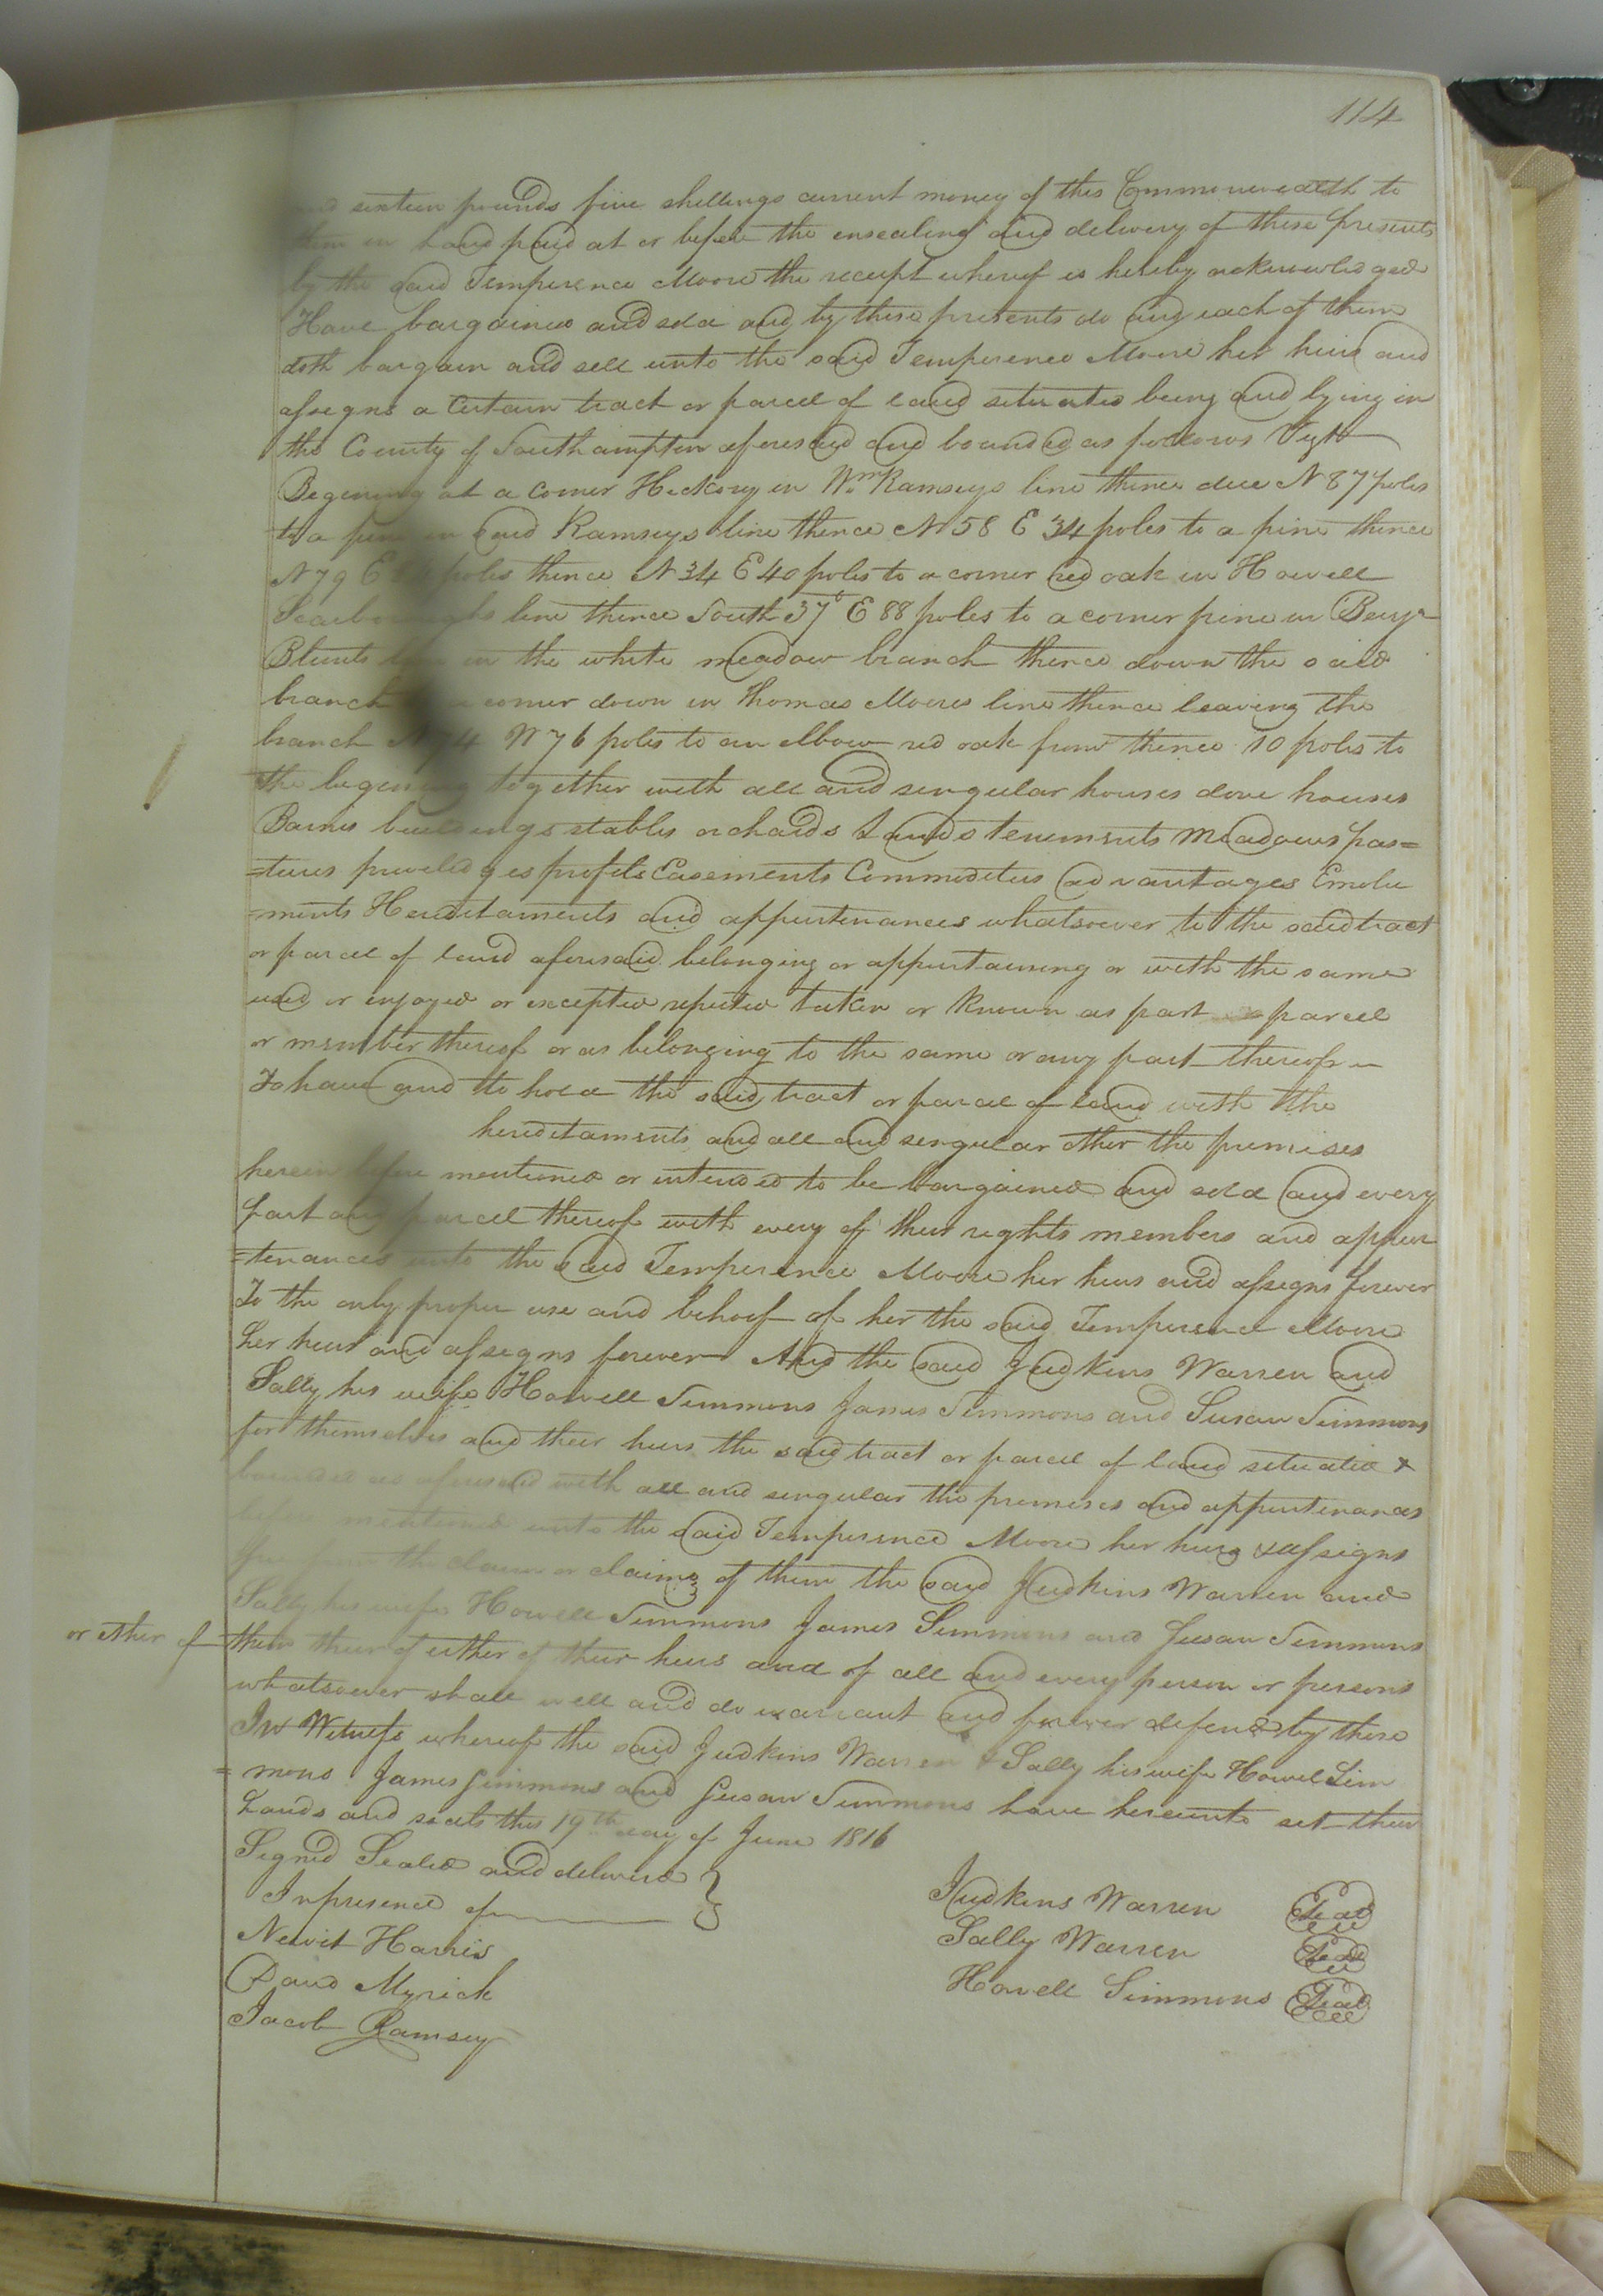 114
sixteen pounds five shillings current money of this Commonwealth to
in hand paid at or before the ensealing and delivery of these presents
by the said Temperence Moore the receipt whereof is hereby acknowledged
Have bargained and sold and by these presents do and each of them
doth bargain and sell unto the said Temperence Moore her heirs and
assigns a Certain tract or parcel of land situated being and lying in
the County of Southampton aforesaid and bounded as follows Vizt
Begining at a corner Hickory in Wm Ramseys line thence due N 87 poles
to a pine in said Ramseys line thence N 58 E 34 poles to a pine thence
N 79 E poles thence N 34 E 40 poles to a corner red oak in Howell
Scarboroughs line thence South 37° E 88 poles to a corner pine in Benjn
Blunts line in the white meadow branch thence down the said
branch corner down in Thomas Moores line thence leaving the
branch N 74 W 76 poles to an elbow red oak from thence 10 poles to
the begining together with all and singular houses dove houses
Barnes buildings stables orchards Lands tenements Meadows pas=
=tures priviledges profits Easements Commodities advantages Emolu
=ments Hereditaments and appurtenances whatsoever to the said tract
or parcel of land aforesaid belonging or appurtaining or with the same
used or enjoyed or excepted reputed taken or known as part parcel
or member thereof or as belonging to the same or any part thereof
To have and to hold the said tract or parcel of land with the
hereditaments and all and singular other the premises
herein before mentioned or intended to be bargained and sold and every
part and parcel thereof with every of their rights members and appur
=tenances unto the said Temperence Moore her heirs and assigns forever
To the only proper use and behoof of her the said Temperence Moore
her heirs and assigns forever And the said Judkins Warren and
Sally his wife Howell Simmons James Simmons and Susan Simmons
for themselves and their heirs the said tract or parcel of land situated &
bounded as aforesaid with all and singular the premises and appurtenances
before mentioned unto the said Temperence Moore her heirs & assigns
from the claim or claims of them the said Judkins Warren and
Sally his wife Howell Simmons James Simmons and Susan Simmons
or either of them their of either of their heirs and of all and every person or persons
whatsoever shall well and do warrant and forever defend by these
In Witness whereof the said Judkins Warren & Sally his wife Howel Sim
=mons James Simmons and Susan Simmons have hereunto set their
hands and seals this 19th day of June 1816
Signed Sealed and delivered
In presence of
Newit Harris
David Myrick
Jacob Ramsey
Judkins Warren Seal
Sally Warren Seal
Howell Simmons Seal